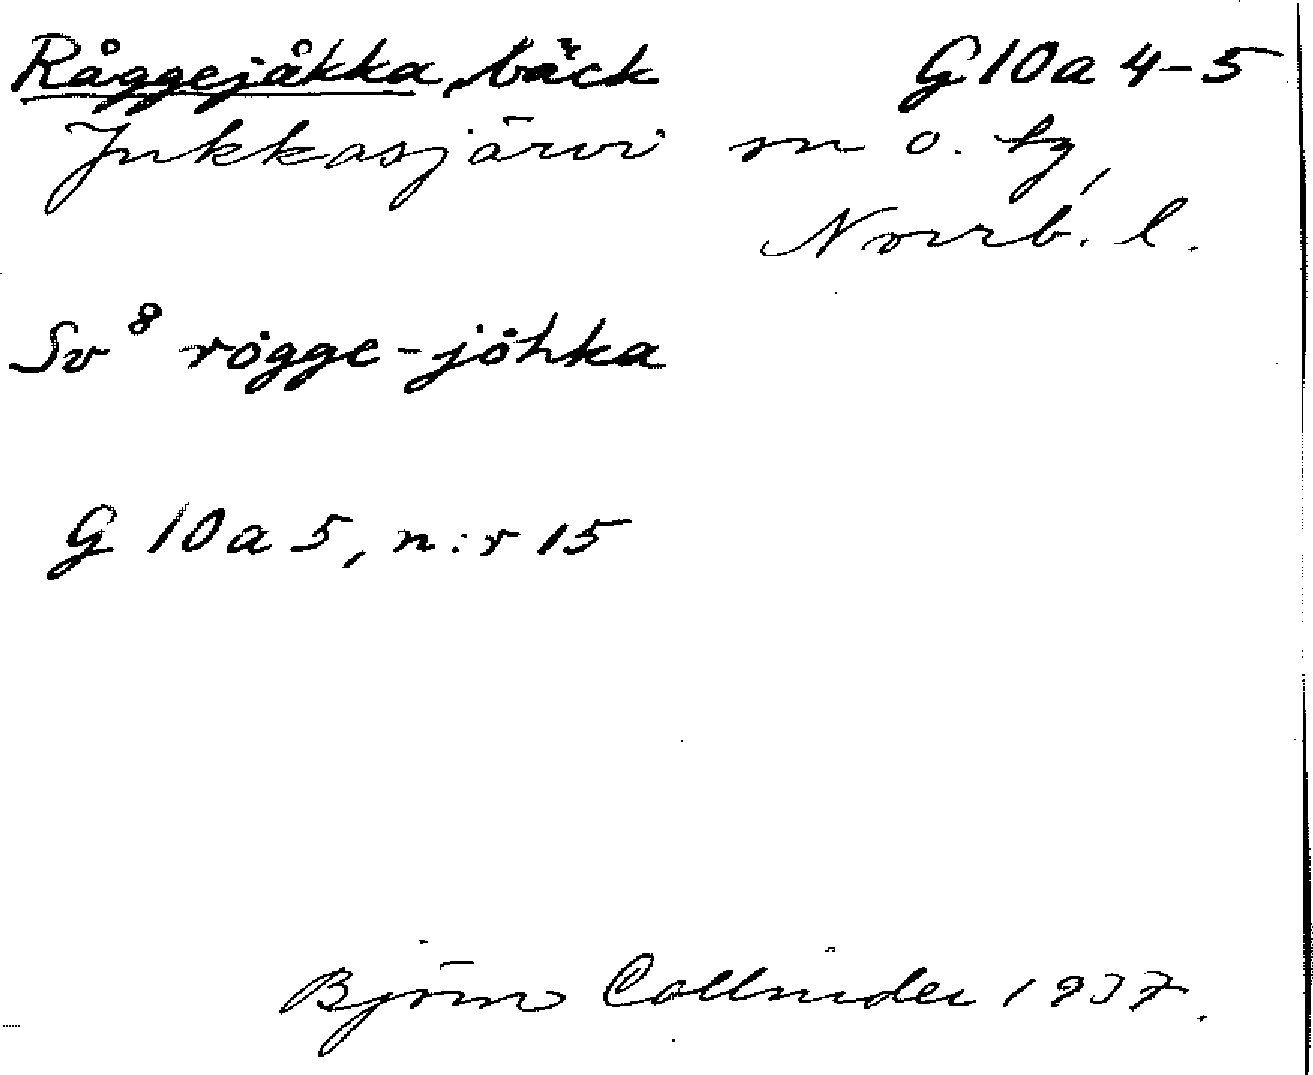 Råggejåkka, bäck G10a 4-5
Jukkasjärvi sn o. tg,
Norrb. l.
Sv⁸ rògge-jòhka
G 10 a 5, n:r 15
Björn Collinder 1937.